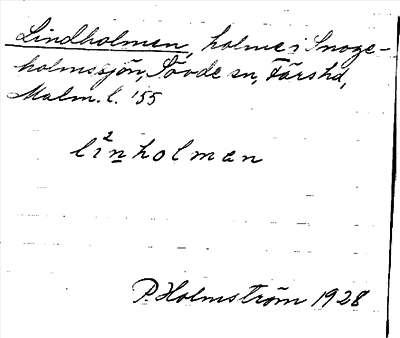 Lindholmen, holme i Snoge-
holmssjön, Sövde sn, Färs hd,
Malm. l. '55
li²nholman
P. Holmström 1928